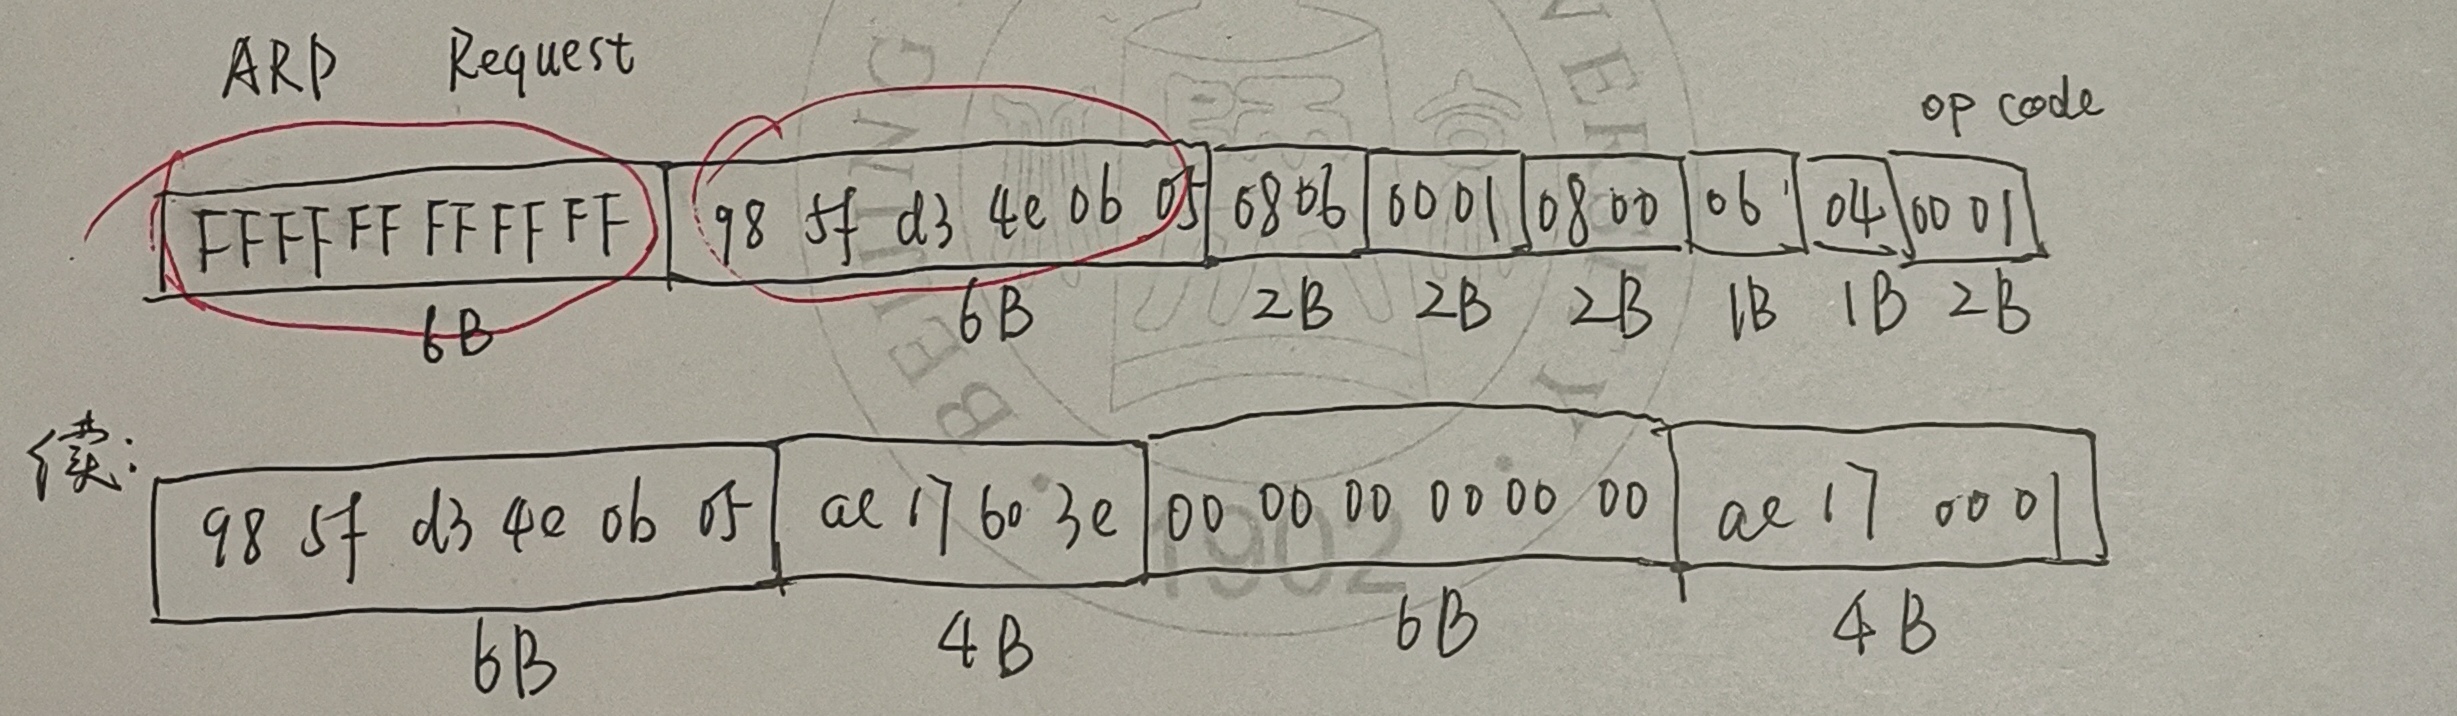 ARP Request
op code
FF FF FF FF FF FF 98 5f d3 4e 0b 05 08 06 00 01 08 00 06 04 00 01
6B 6B 2B 2B 2B 1B 1B 2B
续:
98 5f d3 4e 0b 05 ae 17 60 3e 00 00 00 00 00 00 ae 17 00 01
6B 4B 6B 4B
BEIJING
1902